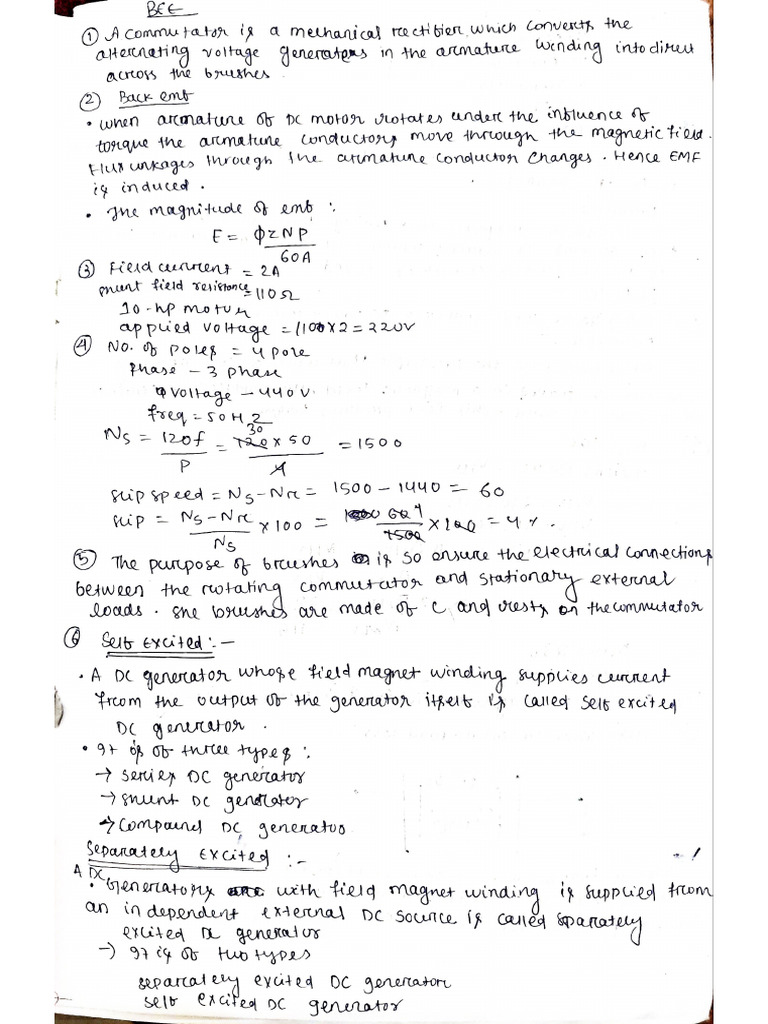 BEE
① A commutator is a mechanical rectifier which converts the
alternating voltage generators in the armature winding into direct
across the brushes.
② Back emf
• when armature of DC motor rotates under the influence of
torque the armature conductors move through the magnetic field.
Flux linkages through the armature conductor changes. Hence EMF
is induced.
• The magnitude of emf :
E = ϕZNP
60A
③ Field current = 2A
shunt field resistance = 110Ω
10-hp motor
applied voltage = 110 × 2 = 220V
④ No. of poles = 4 pole
Phase - 3 phase
voltage - 440V
freq = 50Hz
Ns = 120f / P = 120 30 × 50 / 4 = 1500
slip speed = Ns - Nr = 1500 - 1440 = 60
slip = Ns - Nr / Ns × 100 = 60 4 / 1500 × 100 = 4 %.
⑤ The purpose of brushes is so ensure the electrical connections
between the rotating commutator and stationary external
loads. The brushes are made of C and rests on the commutator
⑥ Self Excited :-
• A DC generator whose field magnet winding supplies current
from the output of the generator itself is called self excited
DC generator.
• It is of three types :
→ Series DC generator
→ shunt DC generator
→ Compound DC generator
Separately Excited :-
A DC
• Generators with field magnet winding is supplied from
an independent external DC source is called sparately
excited DC generator
→ It is of two types
separately excited DC generator
self excited DC generator